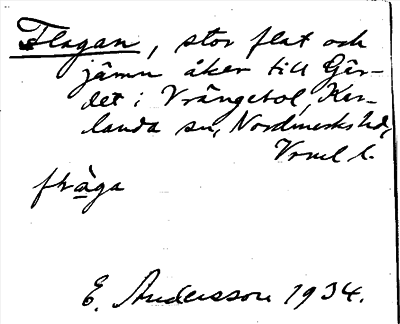 Flagan, stor flat och
jämn åker till Går-
det i Vrångebol, Ker-
landa sn, Nordmarks hd,
Vrml l.
flàga
E. Andersson 1934.